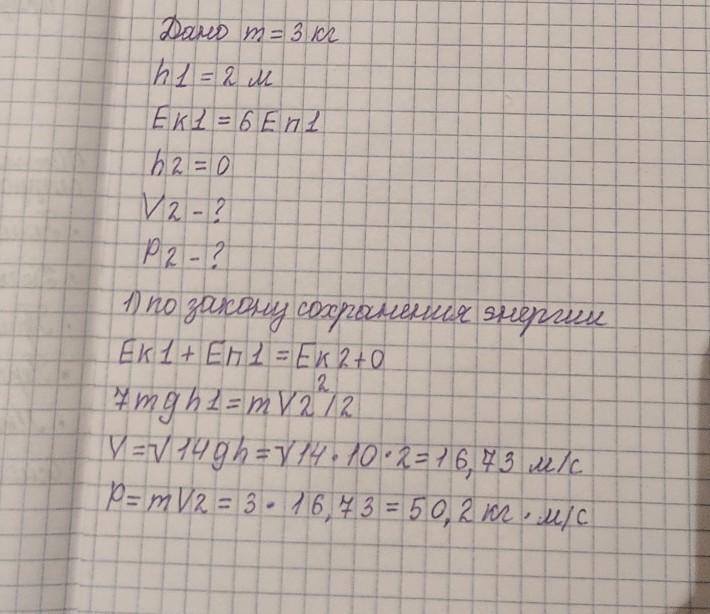 Дано m = 3 кг
h1 = 2 м
Eк1 = 6 Eп1
h2 = 0
V2 - ?
P2 - ?
1) по закону сохранения энергии
Eк1 + Eп1 = Eк2 + 0
7mgh1 = mV2²/2
V = √14gh = √14 · 10 · 2 = 16,73 м/с
P = mV2 = 3 · 16,73 = 50,2 кг · м/с